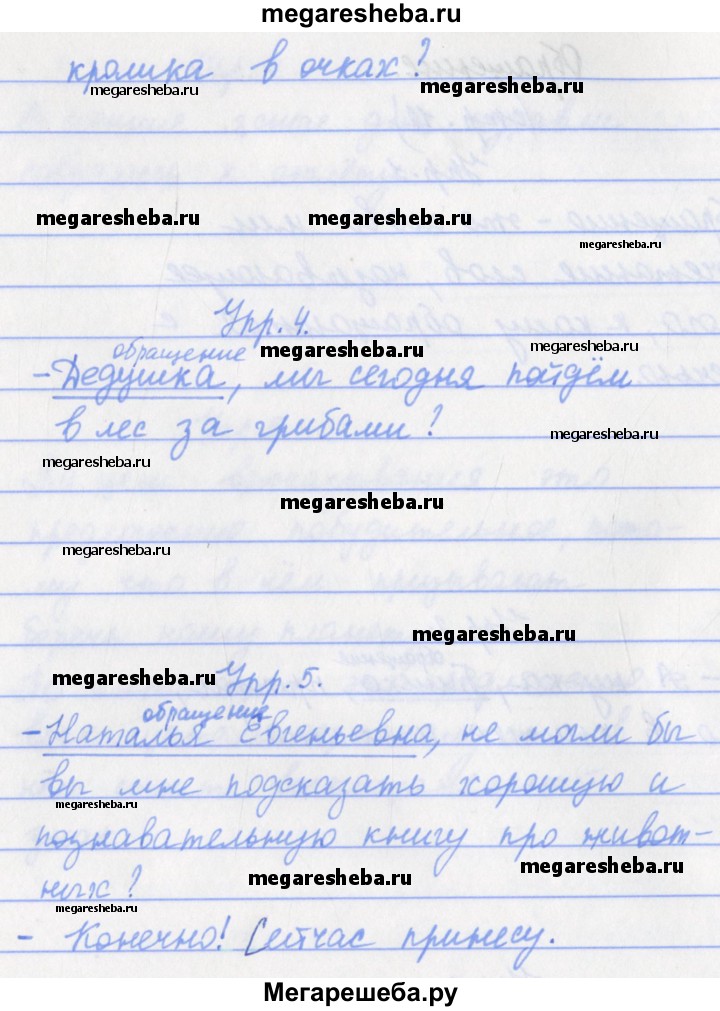 megaresheba.ru
кролика в очках?
megaresheba.ru megaresheba.ru
megaresheba.ru megaresheba.ru
megaresheba.ru
Упр. 4.
обращение megaresheba.ru megaresheba.ru
- Дедушка, мы сегодня пойдём
в лес за грибами?
megaresheba.ru megaresheba.ru
megaresheba.ru
megaresheba.ru
megaresheba.ru
megaresheba.ru Упр. 5.
обращение
- Наталья Евгеньевна, не могли бы
вы мне подсказать хорошую и
megaresheba.ru
познавательную книгу про живот-
megaresheba.ru megaresheba.ru
ных?
megaresheba.ru
- Конечно! Сейчас принесу.
Мегарешеба.ру